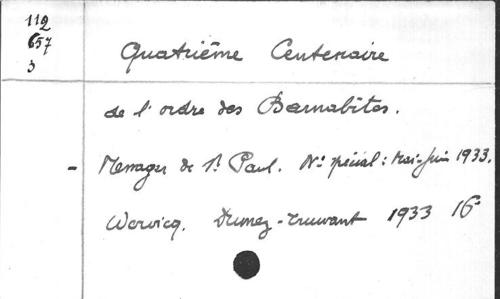 112
657
3
Quatrième Centenaire
de l'ordre des Barnabites.
- Messager de St Paul. No spécial: Mai-Juin 1933.
Wervicq. Dumez-Truwant 1933 16°